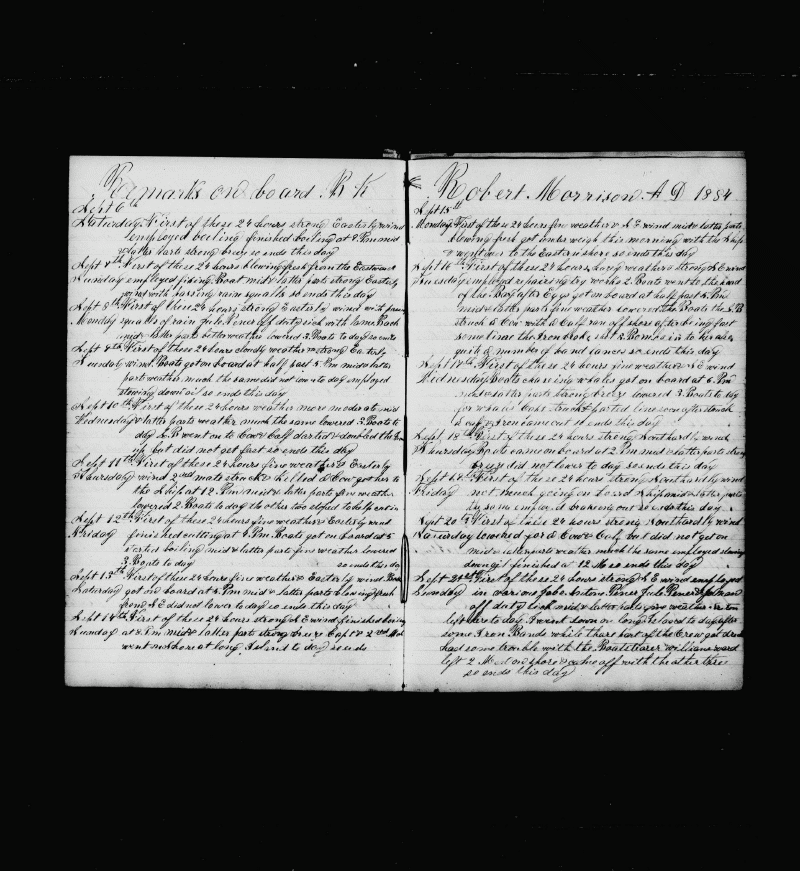 Remarks on board Bk
Sept 6th
Saturday First of these 24 hours strong Easterly wind
employed boiling finished boiling at 8 Pm mid
& latter parts strong breeze so ends this day
Sept 7th First of these 24 hours blowing fresh from the Eastward
Sunday employed fixing Boat mid & latter parts strong Easterly
wind with passing rain squalls so ends this day
Sept 8th First of these 24 hours strong Easterly wind with passing
Monday squalls of rain Jule Penes off duty sick with lame Back
mid & latter parts better weather lowered 3 Boats to day so ends
Sept 9th First of these 24 hours cloudy weather & strong Easterly
Tuesday wind Boats got on board at half past 5 Pm mid & latter
parts weather much the same did not lower to day employed
stowing down oil so ends this day
Sept 10th First of these 24 hours weather more moderate mid
Wednesday & latter parts weather much the same lowered 3 Boats to
day L.B went on to Cow & Calf darted & doubled the Iron
up but did not get fast so ends this day
Sept 11th First of these 24 hours fine weather & Easterly
Thursday wind 2nd mate struck & killed a Cow got her to
the Ship at 12 Pm mid & latter parts fine weather
lowered 2 Boats to day the other two stoped to help cut in
Sept 12th First of these 24 hours fine weather & Easterly wind
Friday finished cutting at 4 Pm Boats got on board at 5
started boiling mid & latter parts fine weather lowered
3 Boats to day so ends this day
Sept 13th First of these 24 hours fine weather & Easterly wind Boats
Saturday got on board at 5 Pm mid & latter parts blowing fresh
from S E did not lower to day so ends this day
Sept 14th First of these 24 hours strong S E wind finished boiling
Sunday at 8 Pm mid & latter parts strong breeze Capt & 2nd Mate
went on shore at long Island to day so ends
Robert Morrison A D 1884
Sept 15th
Monday First of these 24 hours fine weather & S E wind mid & latter parts
blowing fresh got under weigh this morning with the Ship
& went over to the Eastern shore so ends this day
Sept 16th First of these 24 hours hazy weather & strong S E wind
Tuesday employed repairing try works 2 Boats went to the head
of the Bay after Eggs got on board at half past 5 Pm
mid & latter parts fine weather lowered the Boats the S B
struck a Cow with a Calf ran off shore after being fast
some time the Iron broke
quit a number of
so ends this day
Sept 17th First of these 24 hours fine weather & S E wind
Wednesday Boats chasing whales got on board at 6 Pm
mid & latter parts strong breeze lowered 3 Boats to day
for whales Capt struck & parted line soon after struck
a cow & Iron came out so ends this day
Sept 18th First of these 24 hours strong Southardly wind
Thursday Boats came on board at 2 Pm mid & latter parts strong
breeze did not lower to day so ends this day
Sept 19th First of these 24 hours strong Southardly wind
Friday not much going on board Ship mid & latter parts
the same employed breaking out so ends this day
Sept 20th First of these 24 hours strong Southardly wind
Saturday lowered for a Cow & Calf but did not get on
mid & latter parts weather much the same employed stowing
down oil finished at 12 M so ends this day
Sept 21st First of these 24 hours strong S E wind employed
Sunday in various Jobs Antone Penes Jule Penes &
off duty sick mid & latter parts fine weather
left here to day I went down on long Island to day after
some Iron Bands while there part of the Crew got drunk
had some trouble with the Boatstearer Williams ward
left 2 Men on shore & came off with the other three
so ends this day